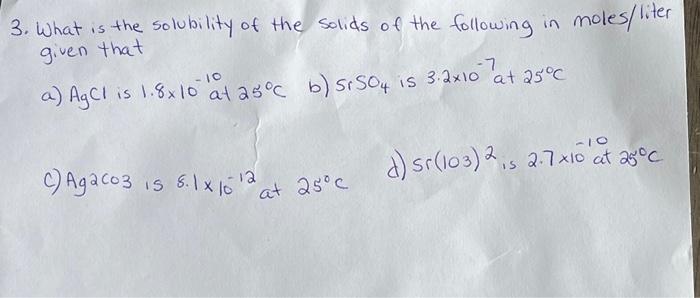 3. What is the solubility of the solids of the following in moles/liter
given that
a) AgCl is 1.8x10^-10 at 25°C b) SrSO4 is 3.2x10^-7 at 25°C
c) Ag2co3 is 8.1x10^-12 at 25°C d) Sr(103)^2 is 2.7x10^-10 at 25°C